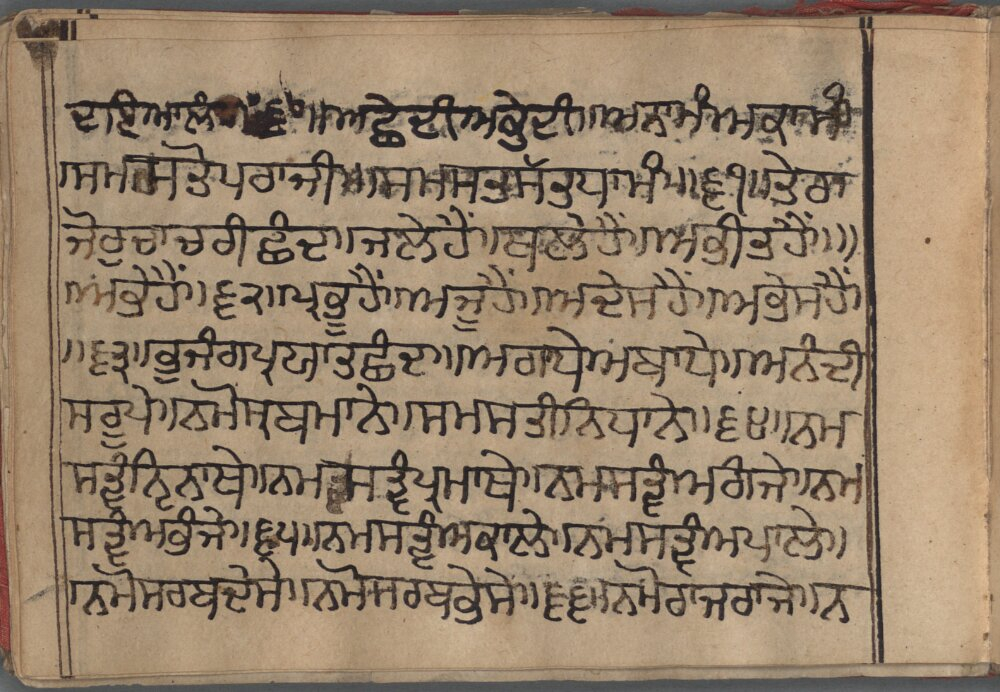 ਦਇਆਲੰ ॥੬੦॥ਅਛੇਦੀਅਭੇਦੀ॥ਅਨਾਮੰਅਕਾਮੰ
॥ਸਮਸਤੋਪਰਾਜੀ॥ਸਮਸਤਸੱਤੁਧਾਮੰ॥੬੧॥ਤੇਰਾ
ਜੋਰੁਚਾਚਰੀਛੰਦ॥ਜਲੇਹੈਂ॥ਥਲੇਹੈਂ॥ਅਭੀਤਹੈਂ॥॥
॥ਅਭੇਹੈਂ॥੬੨॥ਪ੍ਰਭੂਹੈਂ॥ਅਜੂਹੈਂ॥ਅਦੇਸਹੈਂ॥ਅਭੇਸਹੈਂ॥
॥੬੩॥ਭੁਜੰਗਪ੍ਰਯਾਤੁਛੰਦ॥ਅਗਾਧੇਅਬਾਧੇ॥ਅਨੰਦੀ
ਸਰੂਪੇ॥ਨਮੋਸਰਬਮਾਨੇ॥ਸਮਸਤੀਨਿਧਾਨੇ॥੬੪॥ਨਮ
ਸਤ੍ਵੰਨ੍ਰਿਨਾਥੇ॥ਨਮਸਤ੍ਵੰਪ੍ਰਮਾਥੇ॥ਨਮਸਤ੍ਵੰਅਗੰਜੇ॥ਨਮ
ਸਤ੍ਵੰਅਭੰਜੇ॥੬੫॥ਨਮਸਤ੍ਵੰਅਕਾਲੇ॥ਨਮਸਤ੍ਵੰਅਪਾਲੇ॥
॥ਨਮੋਸਰਬਦੇਸੇ॥ਨਮੋਸਰਬਭੇਸੇ॥੬੬॥ਨਮੋਰਾਜਰਾਜੇ॥ਨ